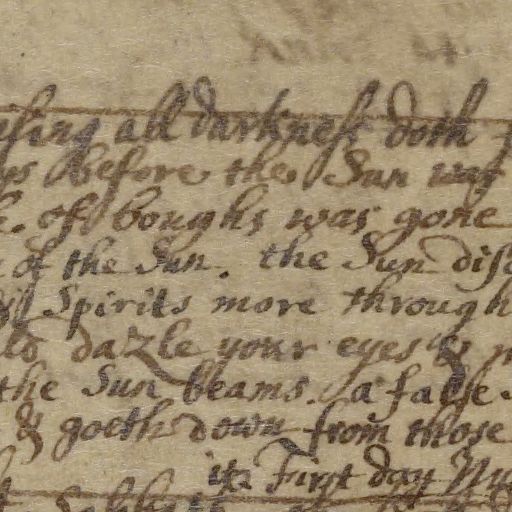 all darkness doth
before the Sun was
of boughs was gone
of the Sun. the Sun
Spirits more through
dazle your eyes &
the Sun beams. a false
& goeth down from those
its First day